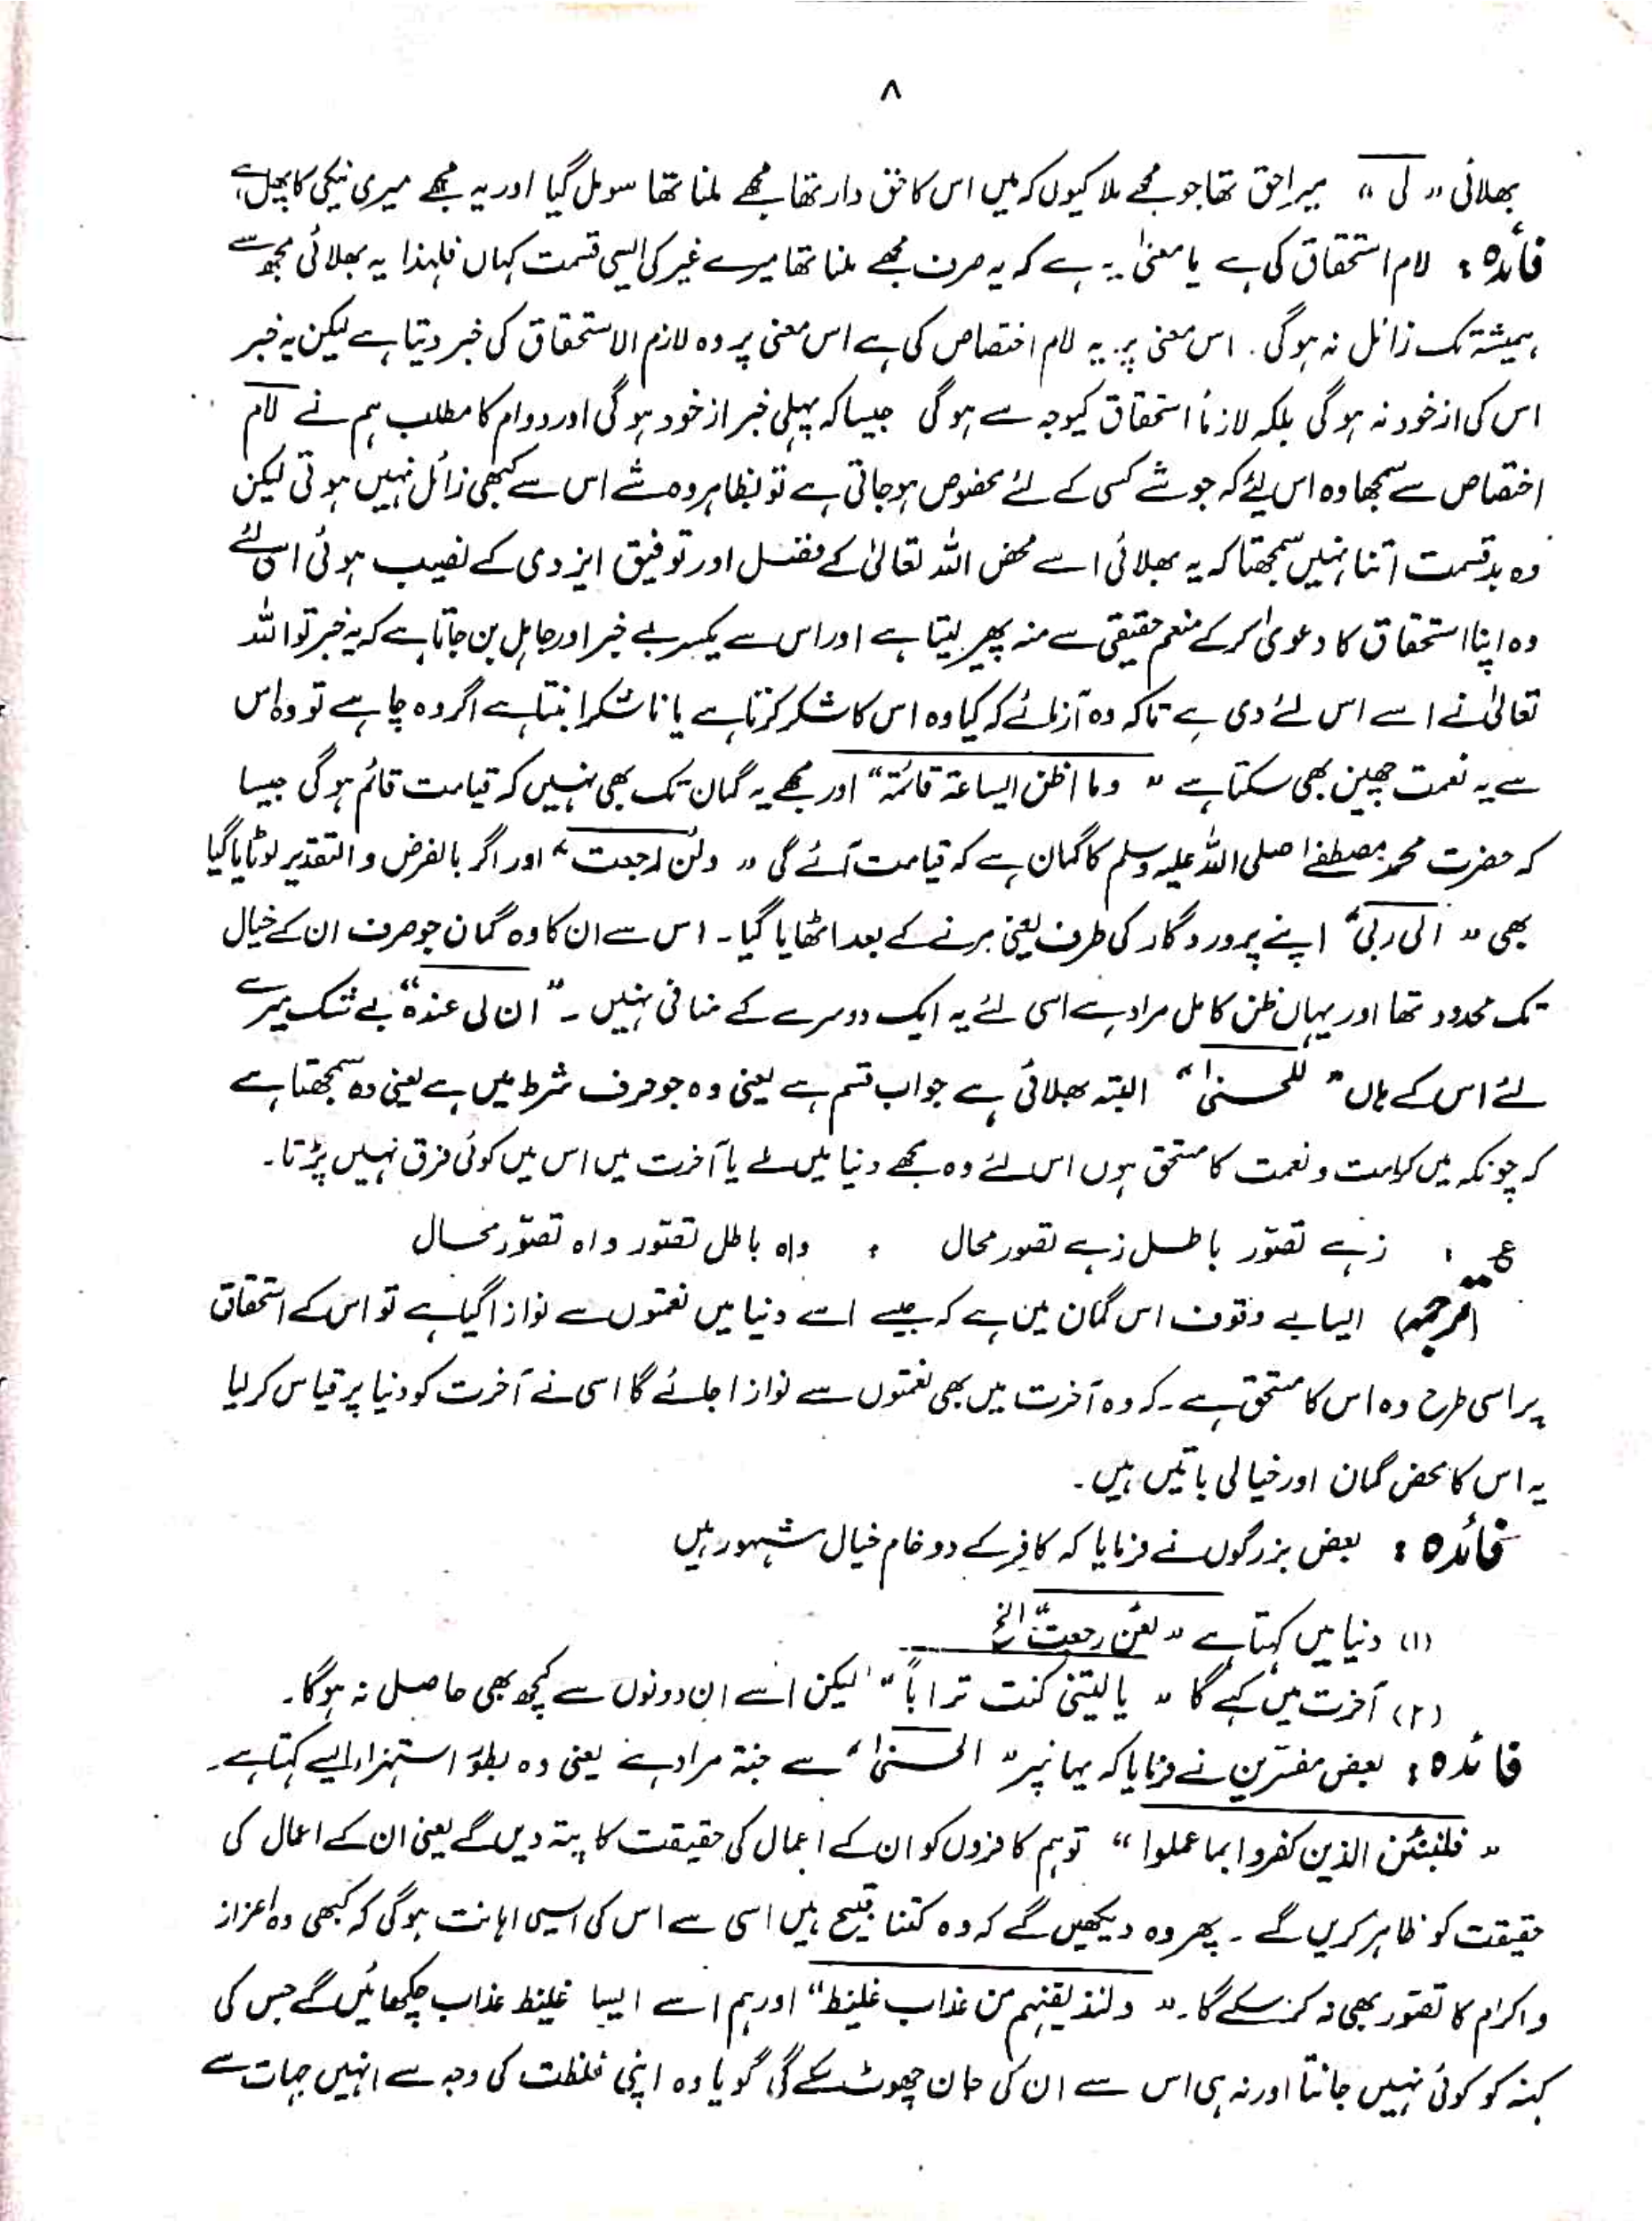 ۸
بھلائی " لی " میرا حق تھا جو مجھے ملا کیوں کہ میں اس کا حق دار تھا مجھے ملنا تھا سو مل گیا اور یہ مجھے میری نیکی کا پھل ہے
فائدہ : لام استحقاق کی ہے یا معنیٰ یہ ہے کہ یہ صرف مجھے ملنا تھا میرے غیر کی ایسی قسمت کہاں فلہذا یہ بھلائی مجھ سے
ہمیشہ تک زائل نہ ہوگی ۔ اس معنی پر یہ لام اختصاص کی ہے اس معنی پر وہ لازم الاستحقاق کی خبر دیتا ہے لیکن یہ خبر
اس کی از خود نہ ہوگی بلکہ لازماً استحقاق کیوجہ سے ہوگی جیسا کہ پہلی خبر از خود ہوگی اور دوام کا مطلب ہم نے لام
اختصاص سے سمجھا وہ اس لئے کہ جو شے کسی کے لئے مخصوص ہو جاتی ہے تو بظاہر وہ شے اس سے کبھی زائل نہیں ہوتی لیکن
وہ بدقسمت اتنا نہیں سمجھتا کہ یہ بھلائی اسے محض اللہ تعالیٰ کے فضل اور توفیق ایزدی کے نصیب ہوئی اس لئے
وہ اپنا استحقاق کا دعویٰ کر کے منعم حقیقی سے منہ پھیر لیتا ہے اور اس سے یکسر بے خبر اور جاہل بن جاتا ہے کہ یہ خبر تو اللہ
تعالیٰ نے اسے اس لئے دی ہے تاکہ وہ آزمائے کہ کیا وہ اس کا شکر کرتا ہے یا ناشکرا بنتا ہے اگر وہ چاہے تو وہ اس
سے یہ نعمت چھین بھی سکتا ہے " وما اظن الساعۃ قائمۃ " اور مجھے یہ گمان تک بھی نہیں کہ قیامت قائم ہوگی جیسا
کہ حضرت محمد مصطفےٰ صلی اللہ علیہ وسلم کا گمان ہے کہ قیامت آئے گی " ولئن رجعت " اور اگر بالفرض والتقدیر لوٹایا گیا
بھی " الی ربی " اپنے پروردگار کی طرف یعنی مرنے کے بعد اٹھایا گیا ۔ اس سے ان کا وہ گمان جو صرف ان کے خیال
تک محدود تھا اور یہاں ظن کامل مراد ہے اسی لئے یہ ایک دوسرے کے منافی نہیں ۔ " ان لی عندہ " بے شک میرے
لئے اس کے ہاں " للحسنیٰ " البتہ بھلائی ہے جواب قسم ہے یعنی وہ جو حرف شرط میں ہے یعنی وہ سمجھتا ہے
کہ چونکہ میں کرامت و نعمت کا مستحق ہوں اس لئے وہ مجھے دنیا میں ملے یا آخرت میں اس میں کوئی فرق نہیں پڑتا ۔
ع : زہے تصوّر باطل زہے تصور محال : واہ باطل تصور واہ تصوّر محال
(ترجمہ) ایسا بے وقوف اس گمان میں ہے کہ جیسے اسے دنیا میں نعمتوں سے نوازا گیا ہے تو اس کے استحقاق
پر اسی طرح وہ اس کا مستحق ہے ۔ کہ وہ آخرت میں بھی نعمتوں سے نوازا جائے گا اسی نے آخرت کو دنیا پر قیاس کر لیا
یہ اس کا محض گمان اور خیالی باتیں ہیں ۔
فائدہ : بعض بزرگوں نے فرمایا کہ کافر کے دو خام خیال مشہور ہیں
(۱) دنیا میں کہتا ہے " لئن رجعت " الخ
(۲) آخرت میں کہے گا " یا لیتنی کنت تراباً " لیکن اسے ان دونوں سے کچھ بھی حاصل نہ ہوگا ۔
فائدہ : بعض مفسّرین نے فرمایا کہ یہاں پر " الحسنیٰ " سے جنۃ مراد ہے یعنی وہ بطور استہزاء ایسے کہتا ہے ۔
" فلننبئن الذین کفروا بما عملوا " تو ہم کافروں کو ان کے اعمال کی حقیقت کا پتہ دیں گے یعنی ان کے اعمال کی
حقیقت کو ظاہر کریں گے ۔ پھر وہ دیکھیں گے کہ وہ کتنا قبیح ہیں اسی سے اس کی ایسی اہانت ہوگی کہ کبھی وہ اعزاز
و اکرام کا تصوّر بھی نہ کر سکے گا ۔ " ولنذیقنہم من عذاب غلیظ " اور ہم اسے ایسا غلیظ عذاب چکھائیں گے جس کی
کنہ کو کوئی نہیں جانتا اور نہ ہی اس سے ان کی جان چھوٹ سکے گی گویا وہ اپنی غلظت کی وجہ سے انہیں جہات سے